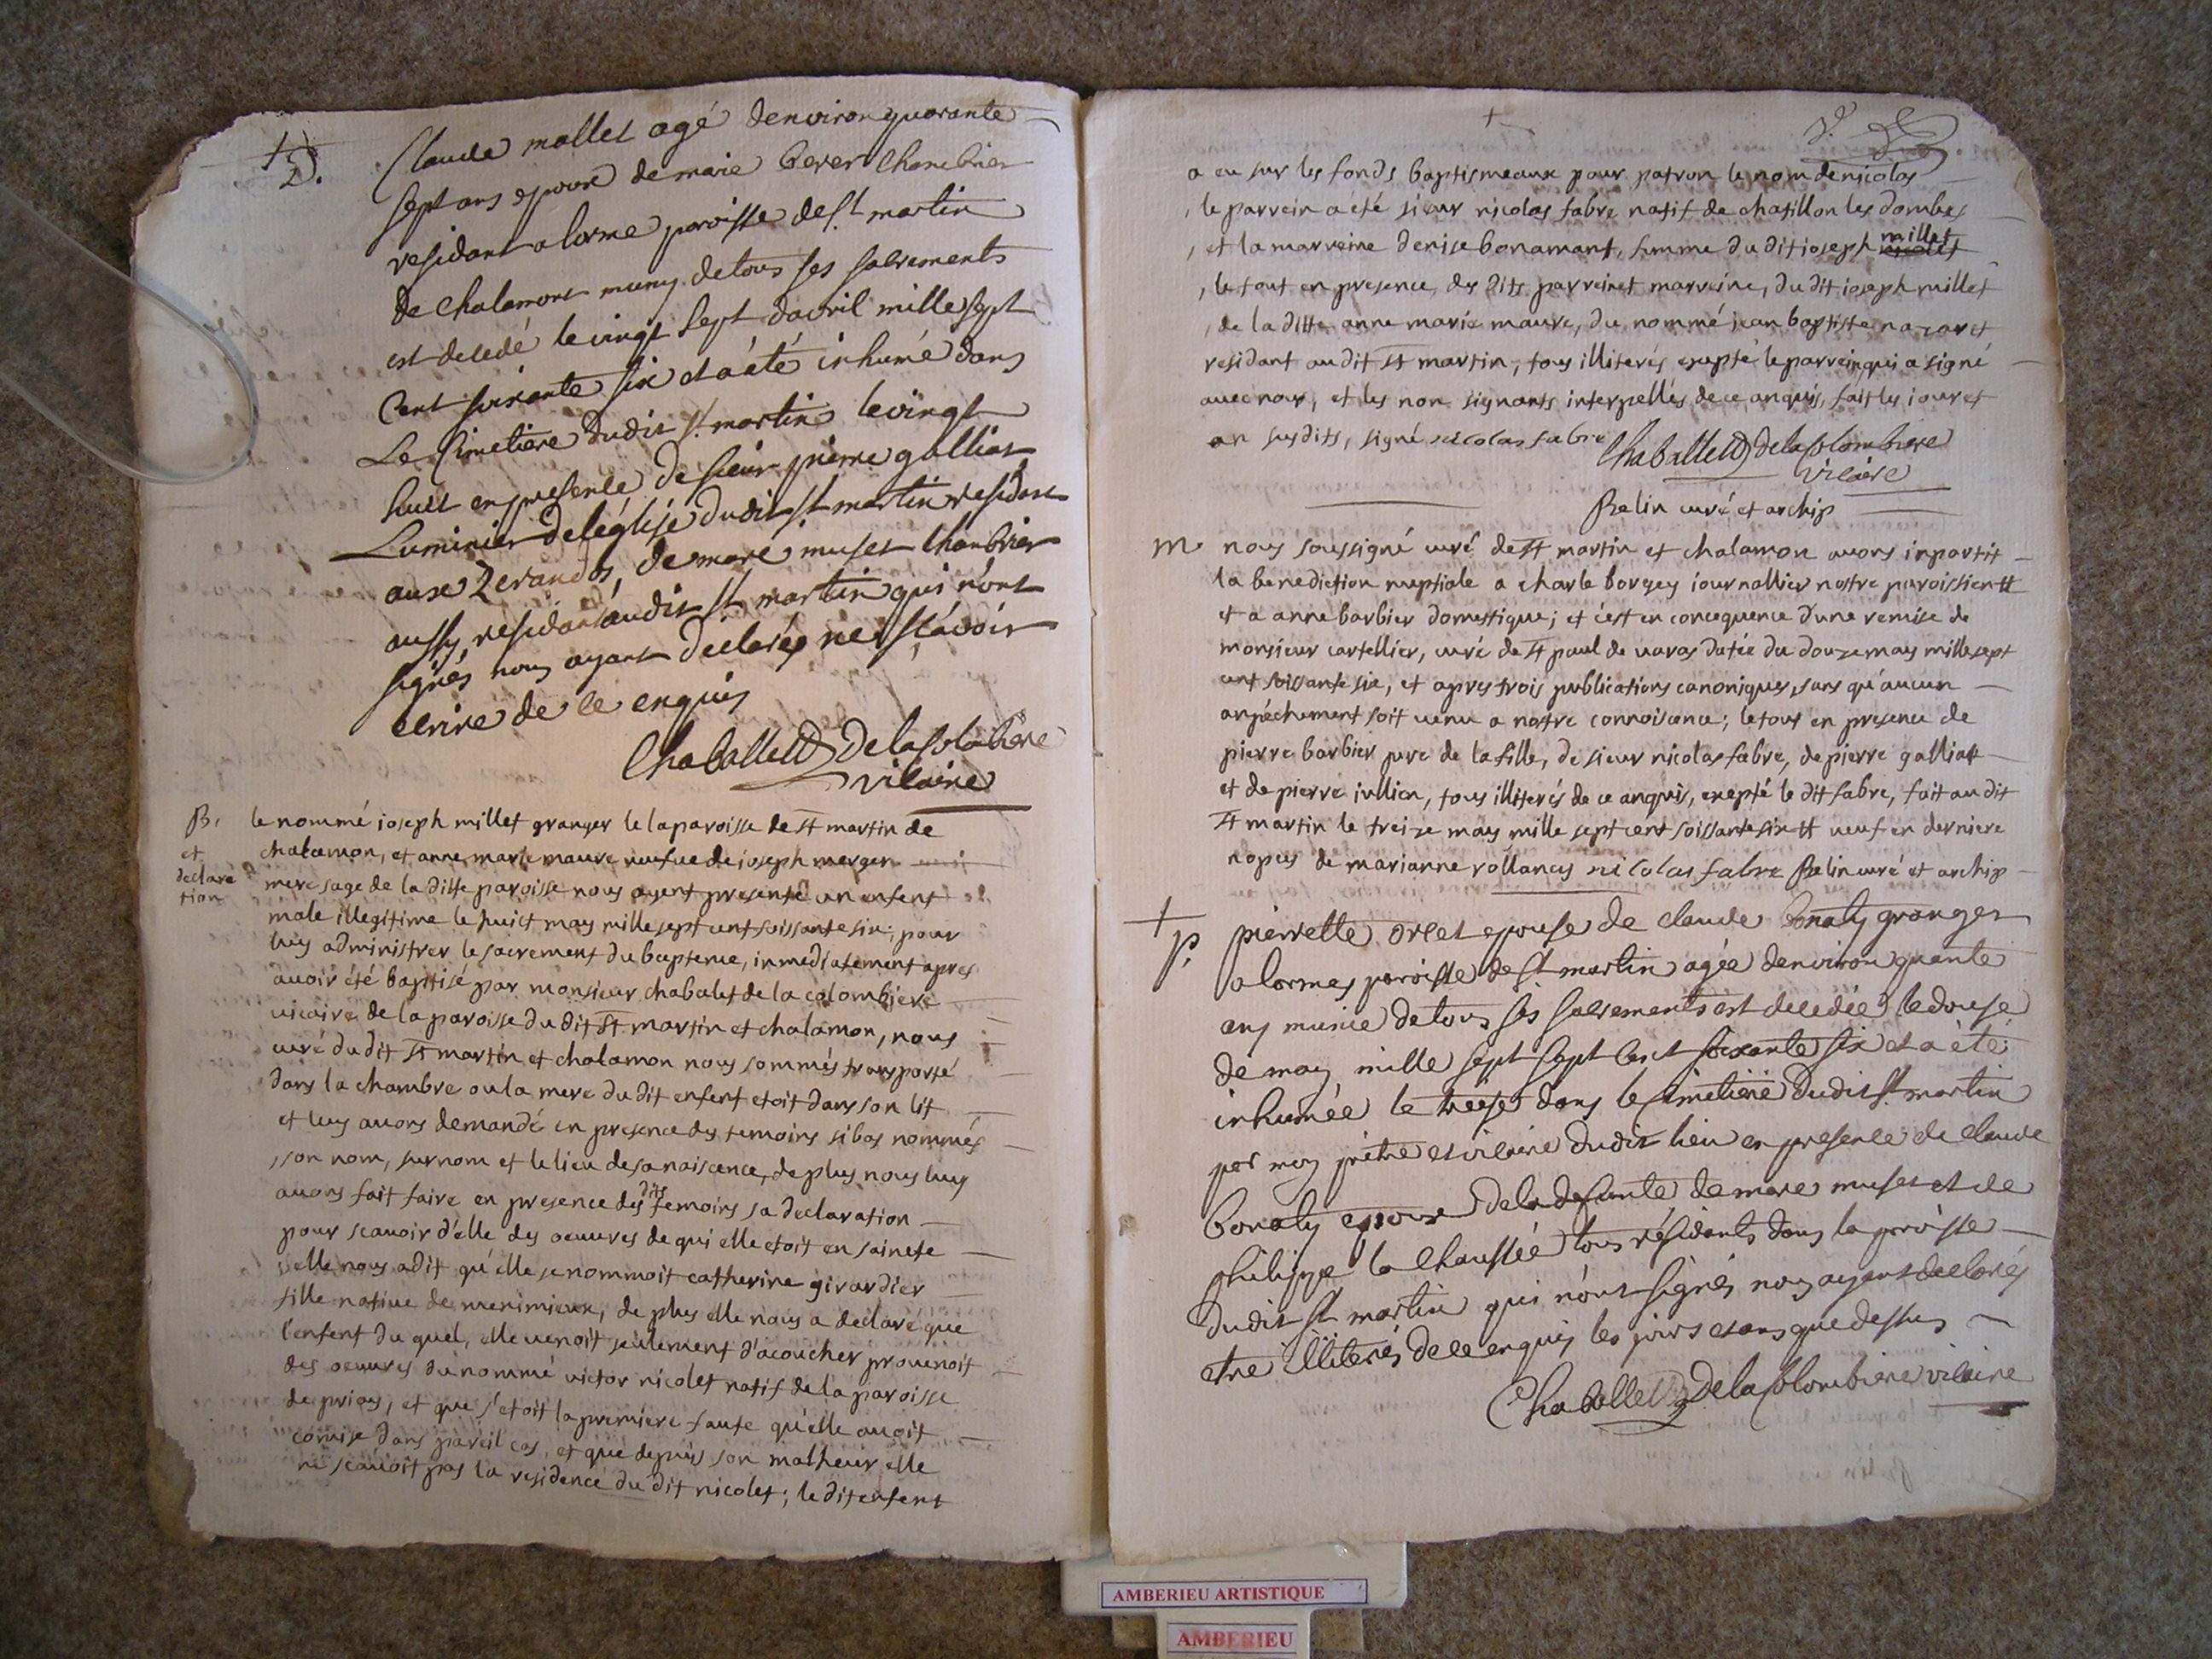 D.
Claude mallet agé denviron quarante
sept ans epoux de marie Chambrier
residant a lorme paroisse de st martin
de Chalamont muny de tous ses sacrements
est decedé le vingt sept davril mille sept
Cent soixante six et a été inhumé dans
Le Cimetiere dudit st martin le vingt
huit en presence de sieur pierre galliat
Luminier de léglise dudit st martin residant
aux de mare muset Chambrier
aussy residant audit st martin qui nont
signés nous ayant declarés ne sçavoir
ecrire de ce enquis
Chaballet De la Colombiere
vicaire
B.
et
declara
tion
le nommé ioseph millet granger le la paroisse de st martin de
chalamon, et anne marie maure veufve de ioseph merger
mere sage de la ditte paroisse nous ayent presenté un enfent
male illegitime le huict may mille sept cent soissante six, pour
luy administrer le sacrement du bapteme, inmediatement apres
avoir été baptisé par monsieur chabalet de la colombiere
vicaire de la paroisse du dit st martin et chalamon, nous
curé du dit st martin et chalamon nous sommés transporté
dans la chambre ou la mere du dit enfent etoit dans son lit
et luy avons demandé en presence des temoins si bas nommés
, son nom, surnom et le lieu de sa naiscence, de plus nous luy
avons fait faire en presence des dits temoins sa declaration
pour scavoir d'élle des oeuvres de qui elle etoit en sainete
, elle nous a dit qu'élle se nommoit catherine girardier
fille native de merimieux, de plus elle nous a declaré que
l'enfent du quel, elle venoit seulement d'acoucher provenoit
des oeuvres du nommé victor nicolet natif de la paroisse
de priay, et que s'etoit la premiere faute qu'elle avoit
comise dans pareil cas, et que depuis son malheur elle
ne scavoit pas la residence du dit nicolet; le dit enfent
a eu sur les fonds baptismeaux pour patron le nom de nicolas
, le parrein a été sieur nicolas fabre natif de chatillon les dombes
, et la marreine denise bonamant, femme du dit ioseph millet
, le tout en presence des dits parrein et marreine, du dit ioseph millet
, de la ditte anne marie maure, du nommé jean baptiste nazaret
residant au dit st martin, tous illiterés exepté le parrein qui a signé
avec nous, et les non signants interpellés de ce anquis, fait les iour et
an susdits, signé nicolas fabre
Chaballet De la Colombiere
vicaire
Relin curé et archip
m.
nous soussigné curé de st martin et chalamon avons inpartit
la benediction nuptiale a charle borgey iournallier nostre paroissien #
et a anne barbier domestique; et c'est en consequence d'une remise de
monsieur cartellier, curé de st paul de varas datée du douze may mille sept
cent soissante six, et apres trois publications canoniques, sans qu'aucun
anpéchement soit venu a nostre connoiscence; le tous en presence de
pierre barbier pere de la fille, de sieur nicolas fabre, de pierre galliat
et de pierre iullien, tous illiterés de ce anquis, exepté le dit fabre, fait au dit
st martin le treize may mille sept cent soissante six # veuf en derniere
nopces de marianne rollancy nicolas fabre Relin curé et archip
p.
pierrette orcet epouse de claude bonaly granger
a lormes paroisse de st martin agée denviron quante
ans munie de tous ses sacrements est decedée le douse
de may mille sept sept Cent soixante six et a été
inhumée le treise dans le Cimetiere dudit st martin
par moy prétre et vicaire dudit lieu en presence de claude
bonaly epoux de la defunte de mare muset et de
philippe la chaussée tous résidants dans la paroisse
dudit st martin qui nónt signés nous ayant declarés
etre illiterés de ce enquis les jours et ans que dessus
Chaballet De la Colombiere vicaire
AMBERIEU ARTISTIQUE
AMBERIEU